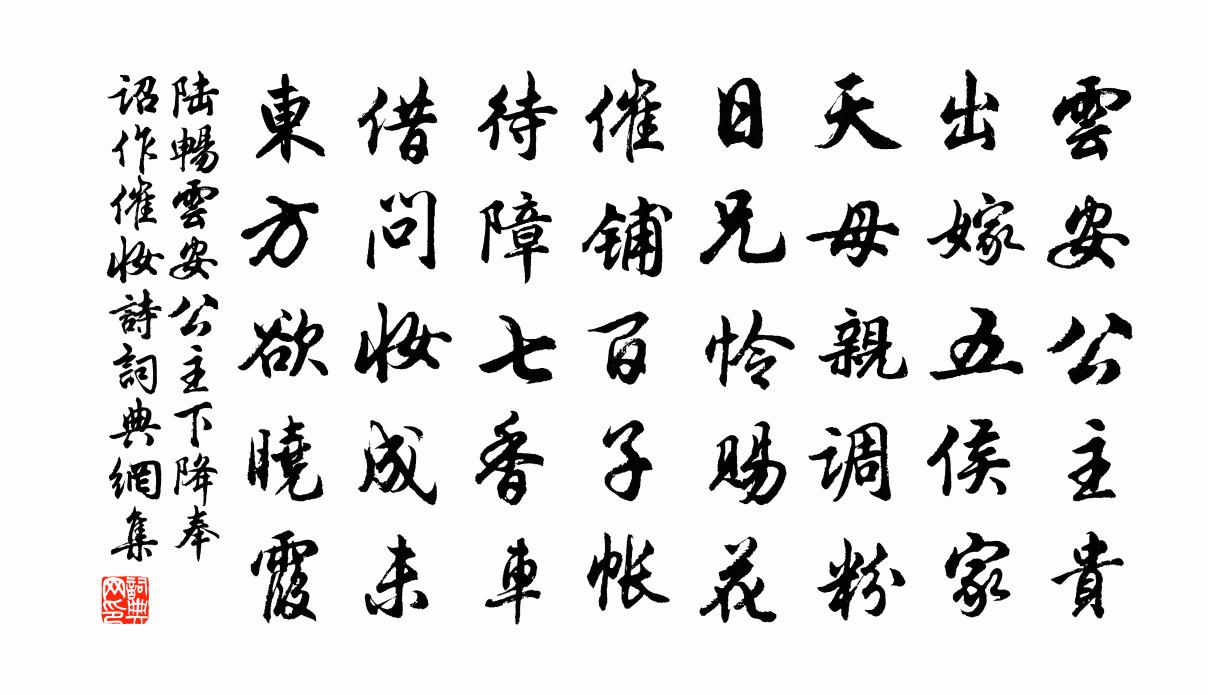 雲安公主貴
出嫁五侯家
天母親調粉
日兄怜賜花
催鋪百子帳
待障七香車
借問妝成未
東方欲曉霞
陆暢雲安公主下降奉
詔作催妝詩詞典網集
詞典
网印